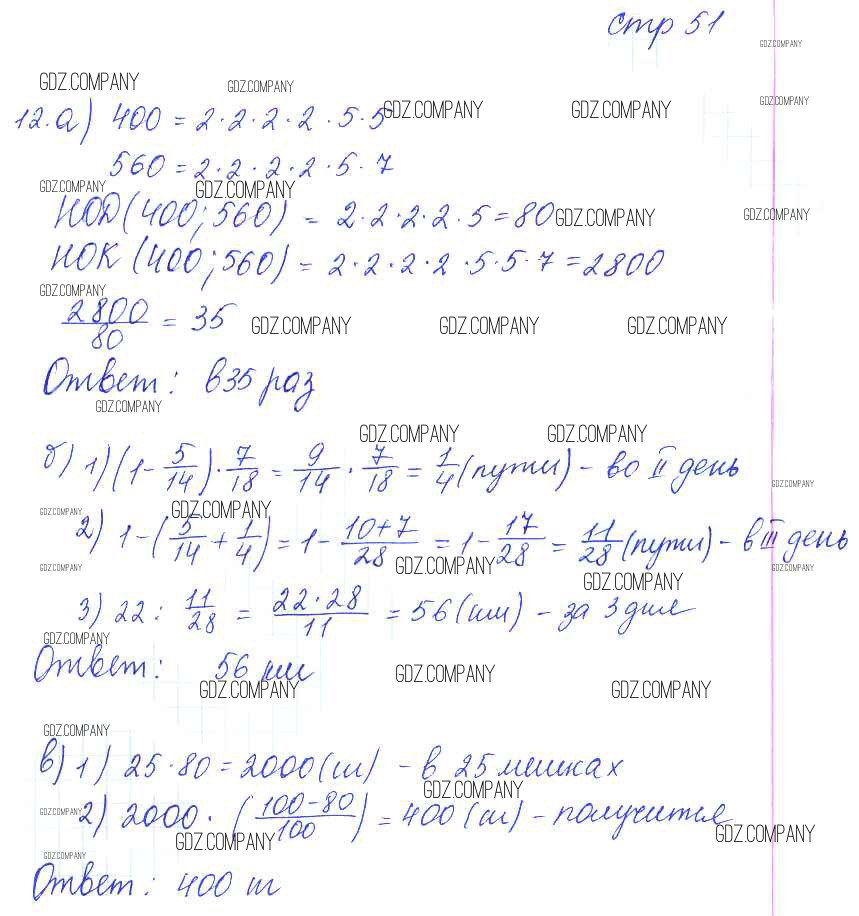 стр 51
GDZ.COMPANY
GDZ.COMPANY GDZ.COMPANY GDZ.COMPANY
12. а) 400 = 2·2·2·2·5·5 GDZ.COMPANY GDZ.COMPANY
560 = 2·2·2·2·5·7
GDZ.COMPANY GDZ.COMPANY
НОД(400;560) = 2·2·2·2·5=80 GDZ.COMPANY GDZ.COMPANY
НОК(400;560) = 2·2·2·2·5·5·7=2800
GDZ.COMPANY
2800/80 = 35 GDZ.COMPANY GDZ.COMPANY GDZ.COMPANY
Ответ: в 35 раз
GDZ.COMPANY
GDZ.COMPANY GDZ.COMPANY
б) 1) (1-5/14)·7/18 = 9/14·7/18 = 1/4 (пути) - во II день
GDZ.COMPANY GDZ.COMPANY GDZ.COMPANY
2) 1-(5/14+1/4) = 1-(10+7)/28 = 1-17/28 = 11/28 (пути) - в III день
GDZ.COMPANY GDZ.COMPANY GDZ.COMPANY
GDZ.COMPANY
3) 22 : 11/28 = 22·28/11 = 56 (км) - за 3 дня
GDZ.COMPANY
Ответ: 56 км
GDZ.COMPANY GDZ.COMPANY GDZ.COMPANY
GDZ.COMPANY
в) 1) 25·80=2000 (ш) - в 25 мешках
GDZ.COMPANY
2) 2000·((100-80)/100) = 400 (ш) - получится
GDZ.COMPANY GDZ.COMPANY GDZ.COMPANY
GDZ.COMPANY
Ответ: 400 ш